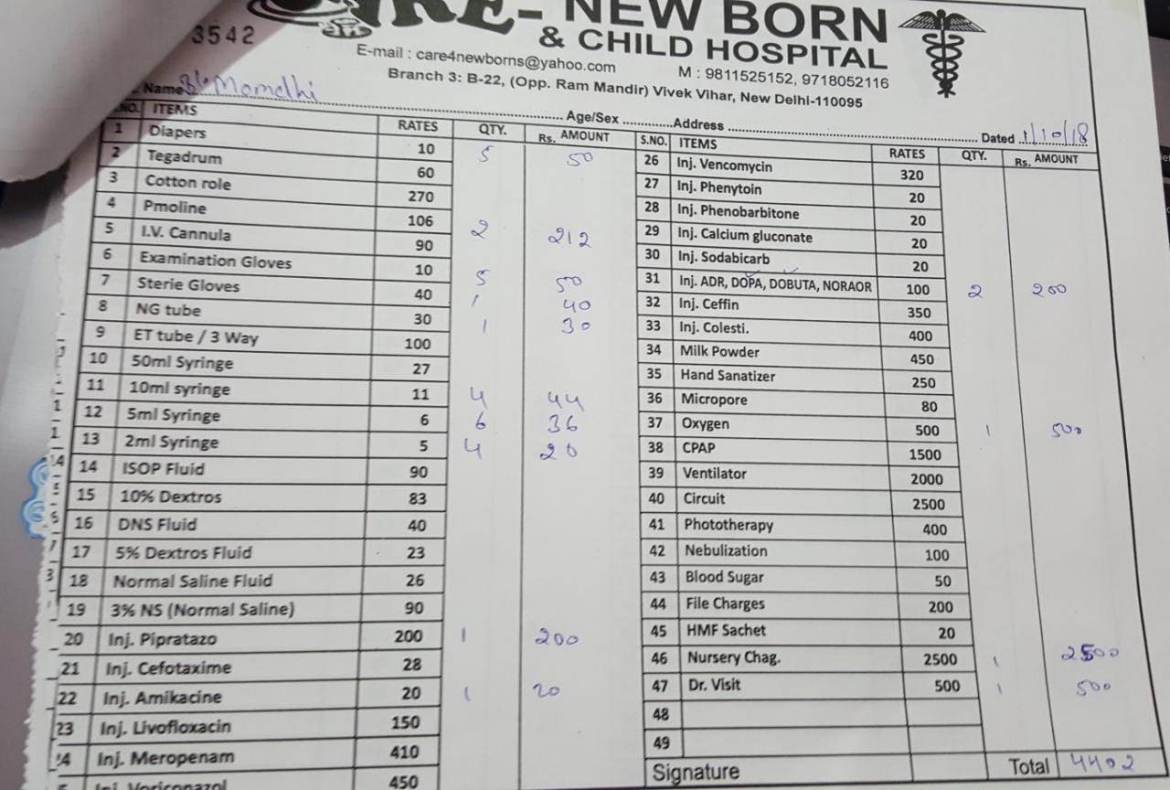 3542
NEW BORN
& CHILD HOSPITAL
E-mail : care4newborns@yahoo.com M : 9811525152, 9718052116
Branch 3: B-22, (Opp. Ram Mandir) Vivek Vihar, New Delhi-110095
Name Age/Sex Address Dated 1/10/18
S.NO. ITEMS RATES QTY. Rs. AMOUNT
1 Diapers 10 5 50
2 Tegadrum 60
3 Cotton role 270
4 Pmoline 106 2 212
5 I.V. Cannula 90
6 Examination Gloves 10 5 50
7 Sterie Gloves 40 1 40
8 NG tube 30 1 30
9 ET tube / 3 Way 100
10 50ml Syringe 27
11 10ml syringe 11 4 44
12 5ml Syringe 6 6 36
13 2ml Syringe 5 4 20
14 ISOP Fluid 90
15 10% Dextros 83
16 DNS Fluid 40
17 5% Dextros Fluid 23
18 Normal Saline Fluid 26
19 3% NS (Normal Saline) 90
20 Inj. Pipratazo 200 1 200
21 Inj. Cefotaxime 28
22 Inj. Amikacine 20 1 20
23 Inj. Livofloxacin 150
24 Inj. Meropenam 410
Inj. Voriconazol 450
S.NO. ITEMS RATES QTY. Rs. AMOUNT
26 Inj. Vencomycin 320
27 Inj. Phenytoin 20
28 Inj. Phenobarbitone 20
29 Inj. Calcium gluconate 20
30 Inj. Sodabicarb 20
31 Inj. ADR, DOPA, DOBUTA, NORAOR 100 2 200
32 Inj. Ceffin 350
33 Inj. Colesti. 400
34 Milk Powder 450
35 Hand Sanatizer 250
36 Micropore 80
37 Oxygen 500 1 500
38 CPAP 1500
39 Ventilator 2000
40 Circuit 2500
41 Phototherapy 400
42 Nebulization 100
43 Blood Sugar 50
44 File Charges 200
45 HMF Sachet 20
46 Nursery Chag. 2500 1 2500
47 Dr. Visit 500 1 500
48
49
Signature Total 4402